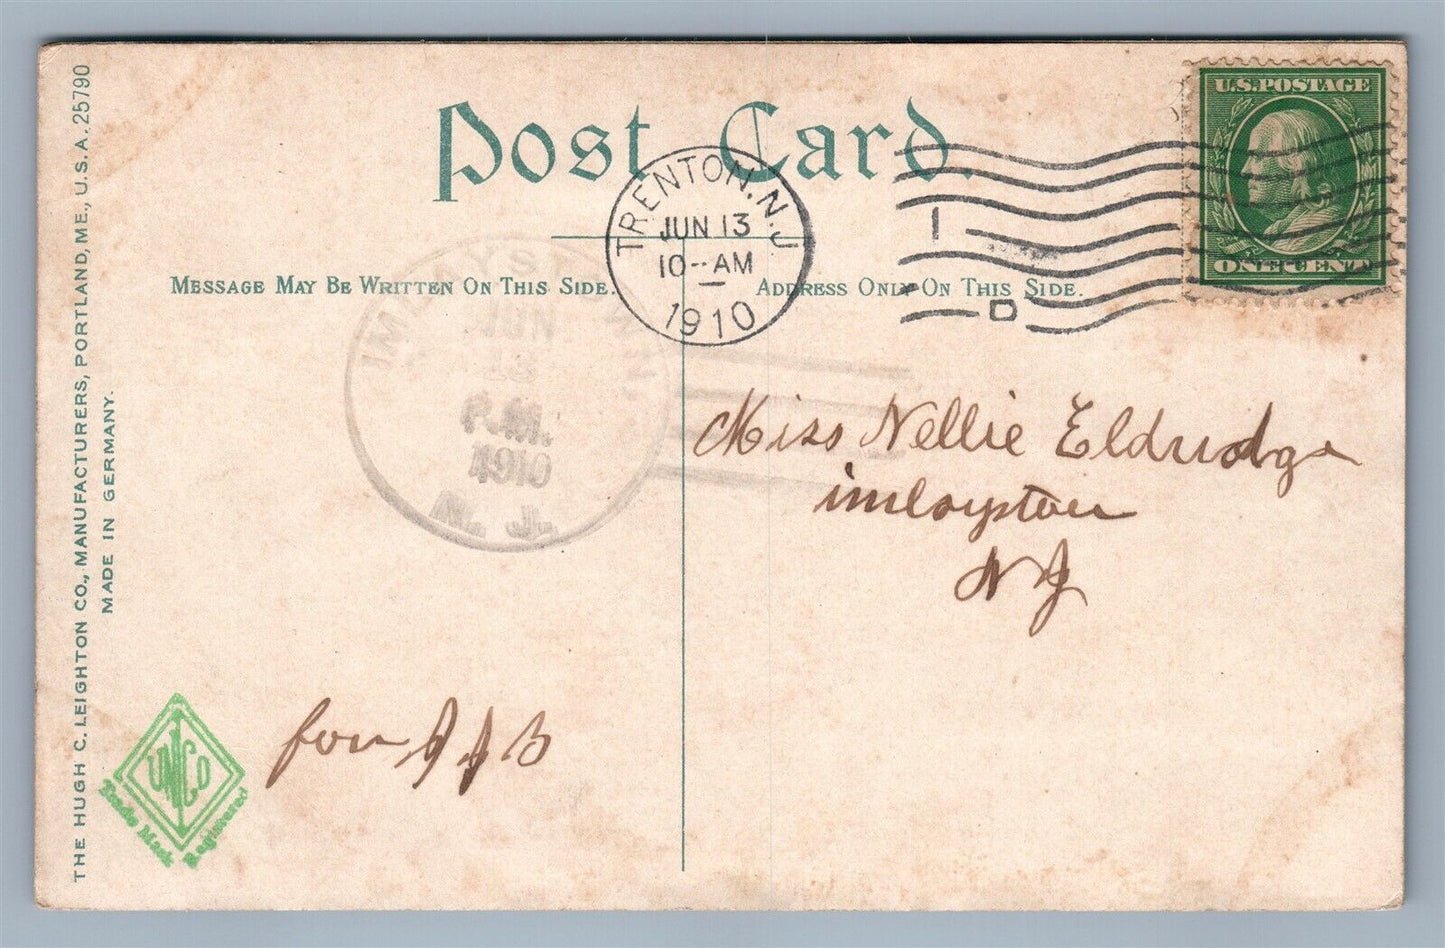 THE HUGH C. LEIGHTON CO., MANUFACTURERS, PORTLAND, ME., U.S.A. 25790
MADE IN GERMANY.
Post Card.
MESSAGE MAY BE WRITTEN ON THIS SIDE.
ADDRESS ONLY ON THIS SIDE.
TRENTON, N.J.
JUN 13
10-AM
1910
1
D
U.S. POSTAGE
ONE CENT
JUN
P.M.
1910
N. J.
Miss Nellie Eldridge
imlaystown
N J
from J J B
UNCo
Trade Mark
Registered